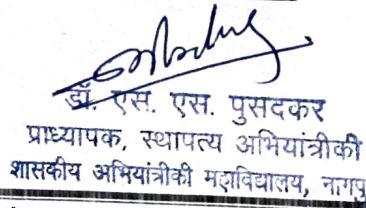 डॉ. एस. एस. पुसदकर
प्राध्यापक, स्थापत्य अभियांत्रीकी
शासकीय अभियांत्रीकी महाविद्यालय, नागपु